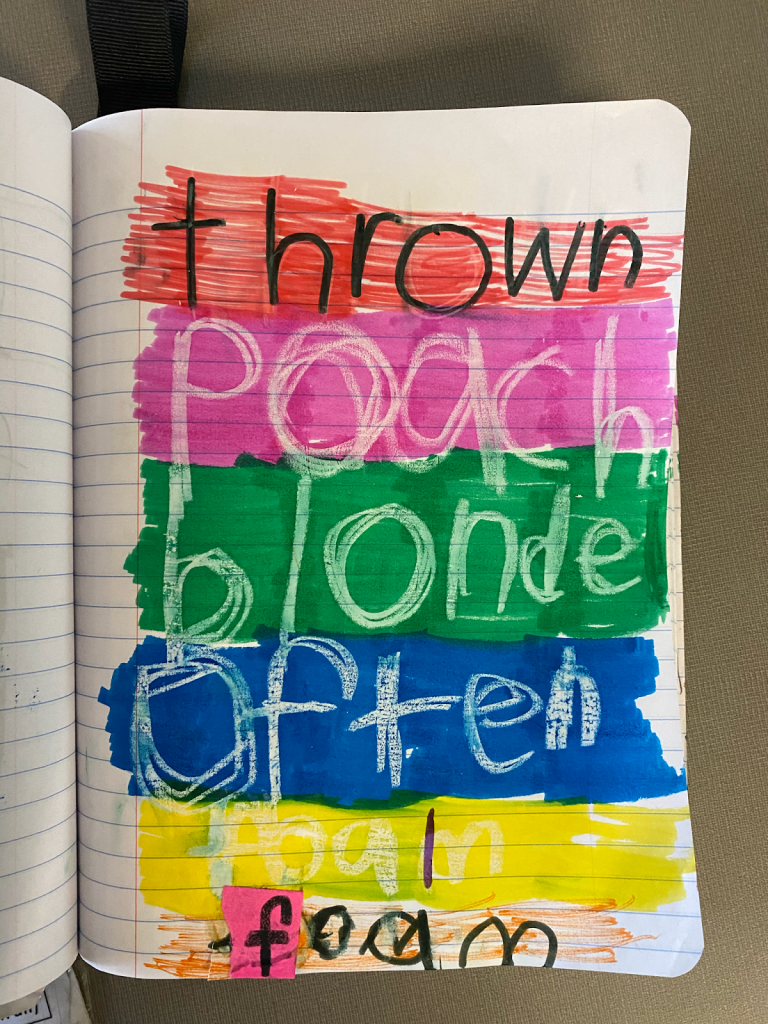 thrown
Poach
blonde
Often
foam
foam